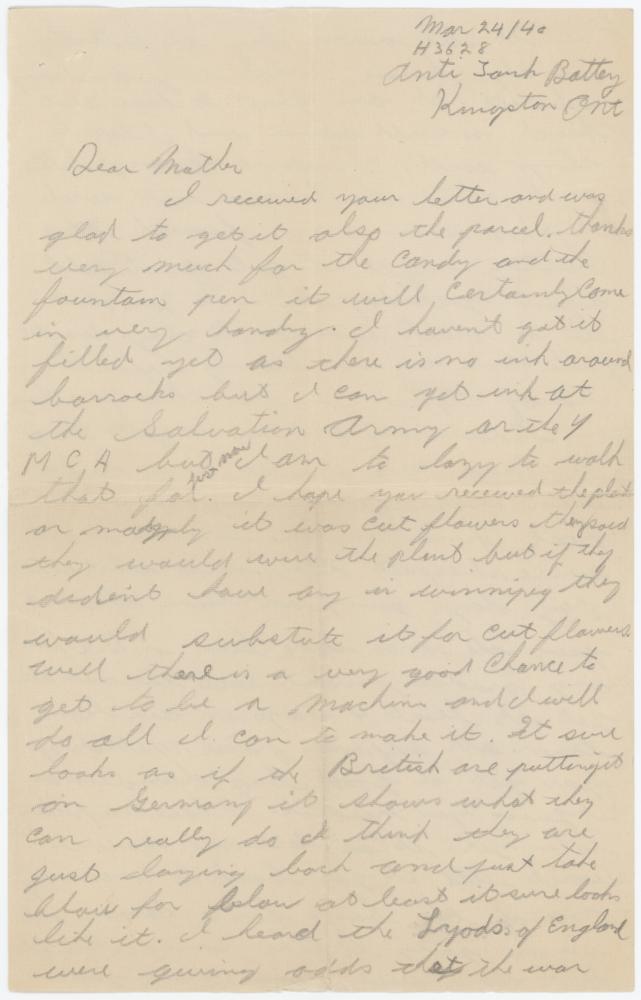 Mar 24/40
H3628
Anti Tank Battey
Kingston Ont
Dear Mother
I received your letter and was
glad to get it also the parcel. thanks
very much for the candy and the
fountain pen it will certainly come
in very handy. I haven't got it
filled yet as there is no ink around
barracks but I can get ink at
the Salvation Army or the Y
M C A but I am to lazy to walk
just now
that far. I hope you received the plant
or it was cut flowers they said
they would wire the plant but if they
dident have any in winnipeg they
would substute it for cut flowers.
well there is a very good chance to
get to be a machine and I will
do all I can to make it. It sure
looks as if the British are putting it
on Germany it shows what they
can really do I think they are
just laying back and just take
blow for blow at least it sure looks
like it. I heard the Lyods of England
were giving odds that the war